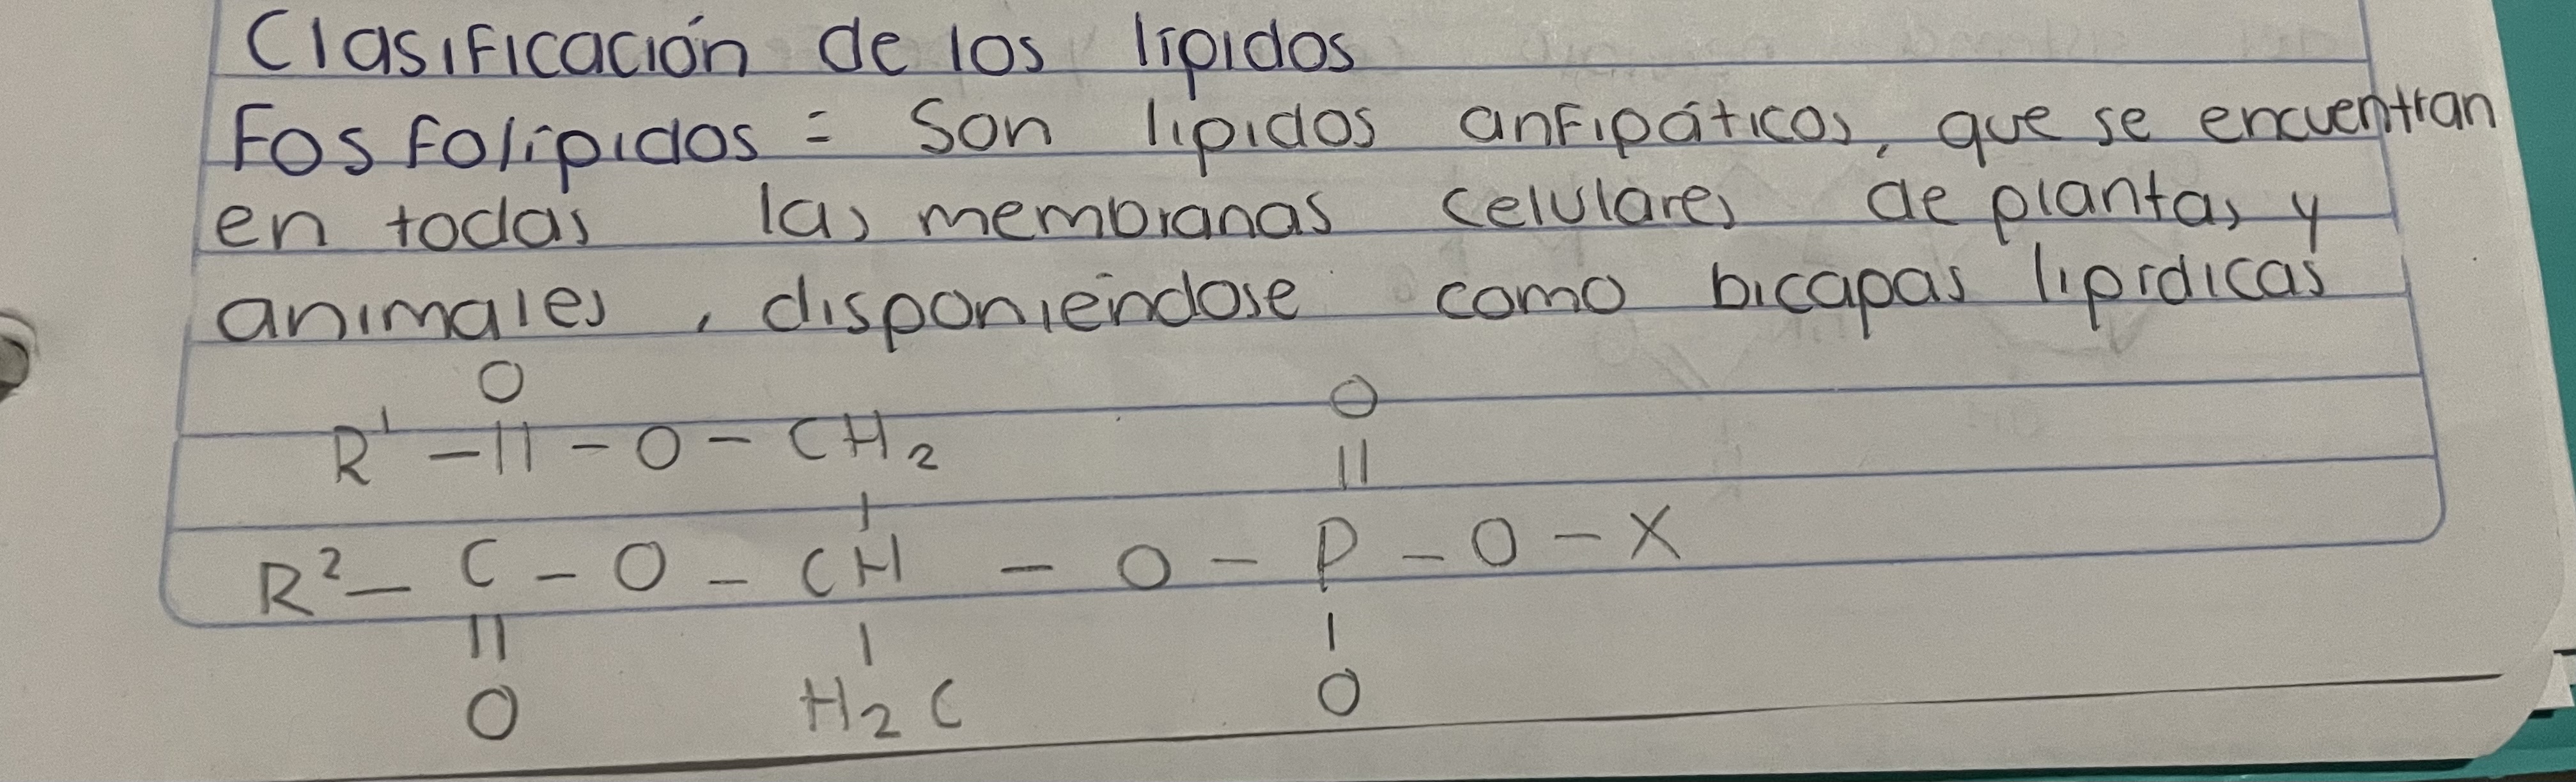 Clasificación de los lípidos
Fosfolípidos = Son lípidos anfipáticos, que se encuentran
en todas las membranas celulares de plantas y
animales, disponiéndose como bicapas lipídicas
O O
R¹ - || - O - CH₂ ||
R² - C - O - CH - O - P - O - X
|| | |
O H₂C O